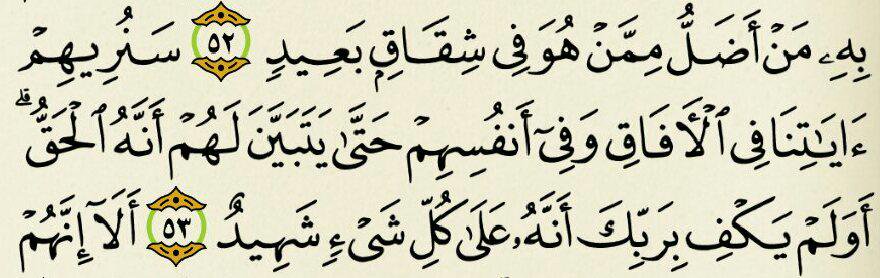 بِهِۦ مَنۡ أَضَلُّ مِمَّنۡ هُوَ فِي شِقَاقِۭ بَعِيدٖ ٥٢ سَنُرِيهِمۡ
ءَايَٰتِنَا فِي ٱلۡأٓفَاقِ وَفِيٓ أَنفُسِهِمۡ حَتَّىٰ يَتَبَيَّنَ لَهُمۡ أَنَّهُ ٱلۡحَقُّۗ
أَوَلَمۡ يَكۡفِ بِرَبِّكَ أَنَّهُۥ عَلَىٰ كُلِّ شَيۡءٖ شَهِيدٌ ٥٣ أَلَآ إِنَّهُمۡ